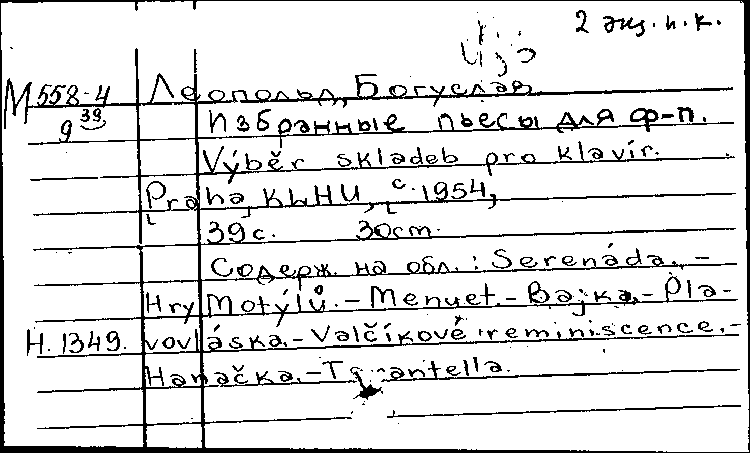 2 экз. н.к.
М 558-4 Леопольд, Богуслав
9 39 Избранные пьесы для ф-п.
Výběr skladeb pro klavír.
Praha, KLHU, c. 1954,
39с. 30cm.
Содерж. на обл.: Serenáda. -
Hry Motýlů. - Menuet. - Bajka. - Pla-
Н. 1349. vovláska. - Valčíkové reminiscence. -
Hanačka. - Tarantella.